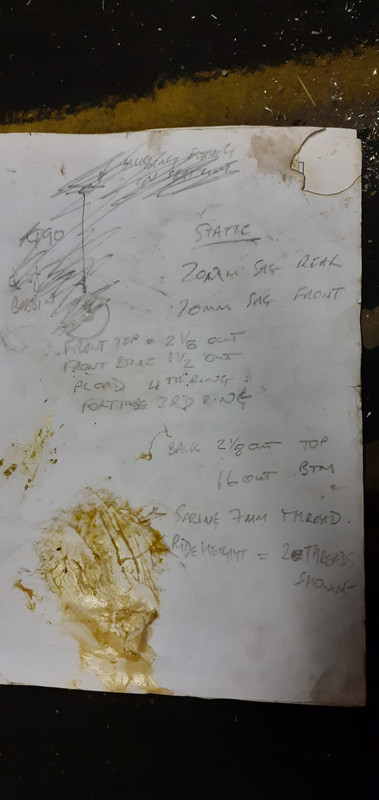 490
STATIC
20mm SAG REAR
20mm SAG FRONT
FRONT TOP = 2 1/8 OUT
FRONT BTM = 1 1/2 OUT
PLOAD 4TH RING
3RD RING
BACK 2 1/8 OUT TOP
16 OUT BTM
SPRING 7MM THREAD.
RIDE HEIGHT = THREADS
SHOWING